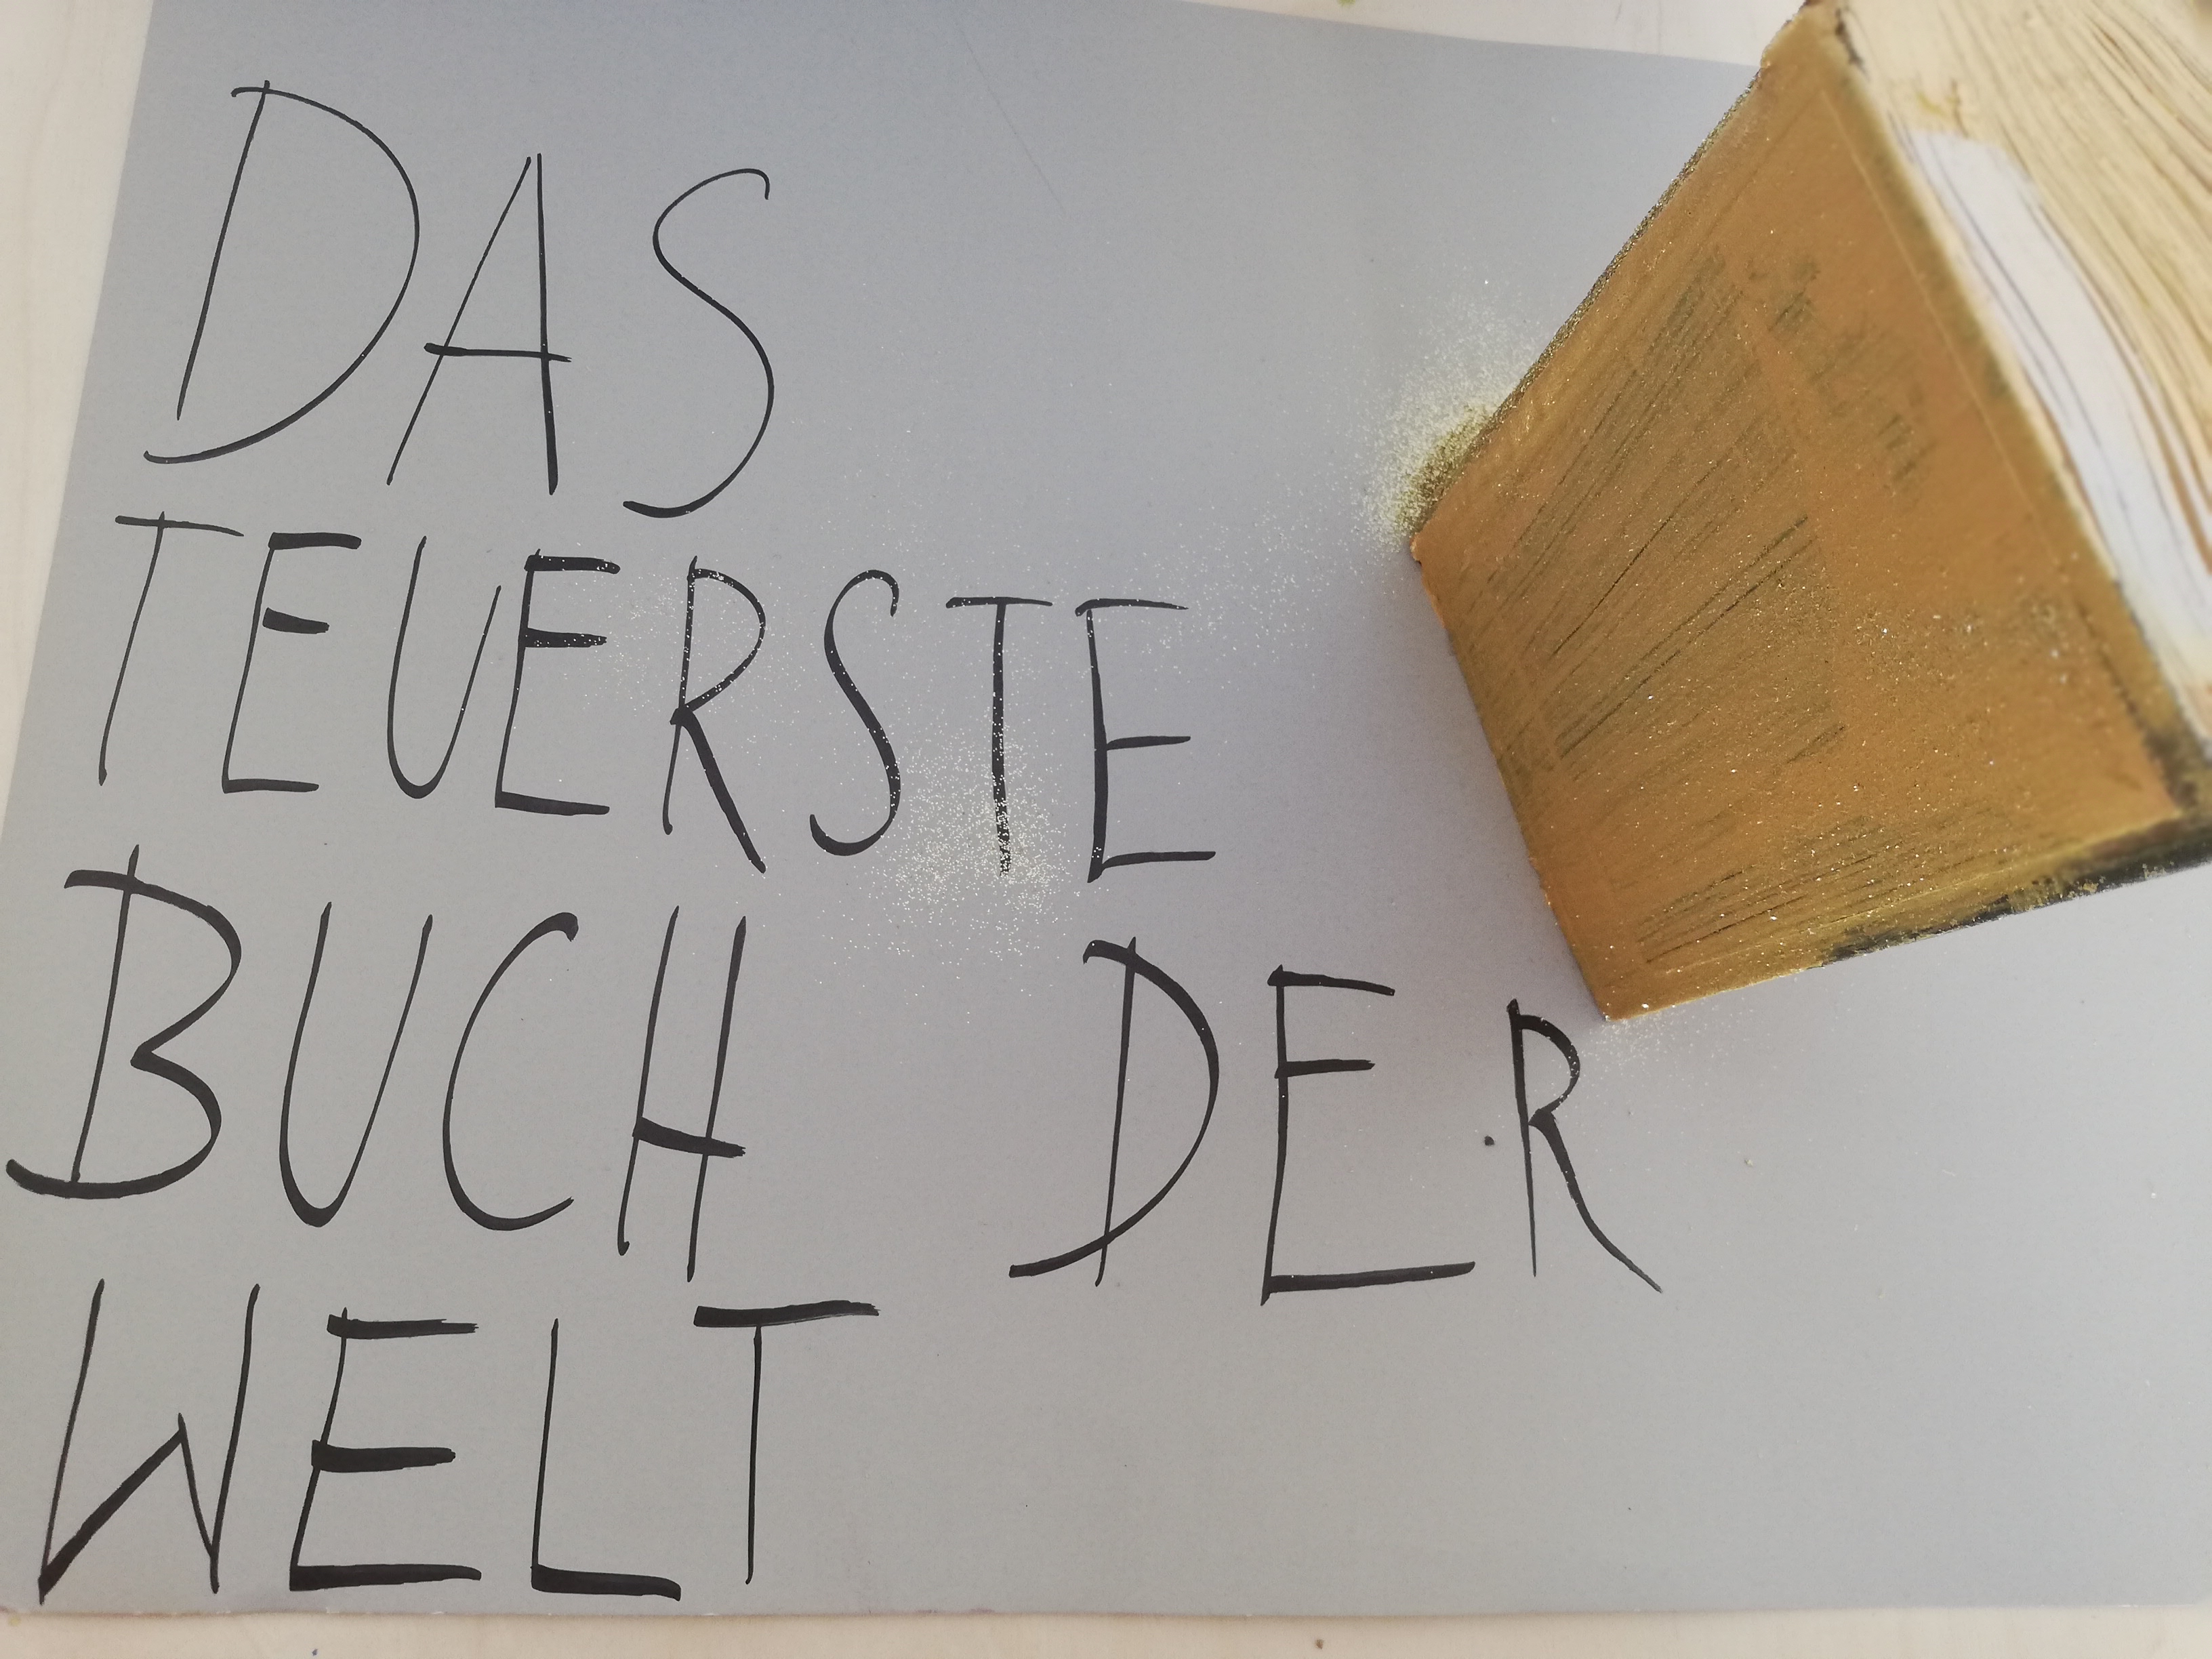 DAS
TEUERSTE
BUCH DER
WELT